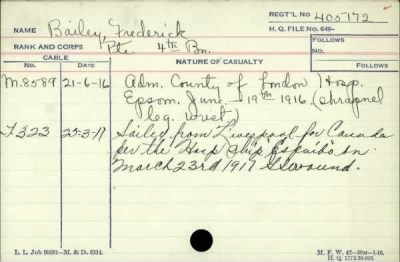 REGT'L NO 405772
NAME Bailey, Frederick
H. Q. FILE NO. 649-
RANK AND CORPS Pte. 4th Bn.
FOLLOWS
No.
CABLE
NATURE OF CASUALTY
No. DATE
FOLLOWS
M.8589 21-6-16 Adm. County of London Hosp.
Epsom. June 19th 1916 (shrapnel
leg. wrist)
T323 25-3-17 Sailed from Liverpool for Canada
per the Hosp Ship on
March 23rd 1917 G.S.wound.
L. L. Job 9858-M. & D. 6314.
M. F. W. 42
H. Q. 1772-39-893.